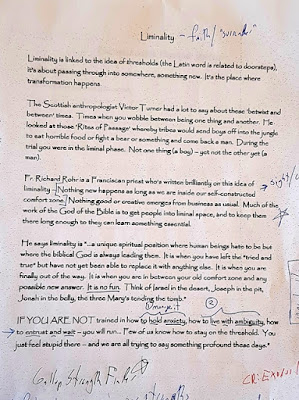 Liminality – faith/"surrender"
Liminality is linked to the idea of thresholds (the Latin word is related to doorsteps),
it's about passing through into somewhere, something new. It's the place where
transformation happens.
The Scottish anthropologist Victor Turner had a lot to say about these 'betwixt and
between' times. Times when you wobble between being one thing and another. He
looked at those 'Rites of Passage' whereby tribes would send boys off into the jungle
to eat horrible food or fight a bear or something and come back a man. During the
trial you were in the liminal phase. Not one thing (a boy) – yet not the other yet (a
man).
Fr. Richard Rohr is a Franciscan priest who's written brilliantly on this idea of
liminality – [Nothing new happens as long as we are inside our self-constructed
comfort zone.] Nothing good or creative emerges from business as usual. Much of the
work of the God of the Bible is to get people into liminal space, and to keep them
there long enough to they can learn something essential.
He says liminality is "...a unique spiritual position where human beings hate to be but
where the biblical God is always leading them. It is when you have left the "tried and
true" but have not yet been able to replace it with anything else. It is when you are
finally out of the way. It is when you are in between your old comfort zone and any
possible new answer. It is no fun. Think of Israel in the desert, Joseph in the pit,
Jonah in the belly, the three Mary's tending the tomb."
②
IF YOU ARE NOT trained in how to hold anxiety, how to live with ambiguity, how
to entrust and wait – you will run... Few of us know how to stay on the threshold. You
just feel stupid there – and we are all trying to say something profound these days."
Gallup Strength Finder